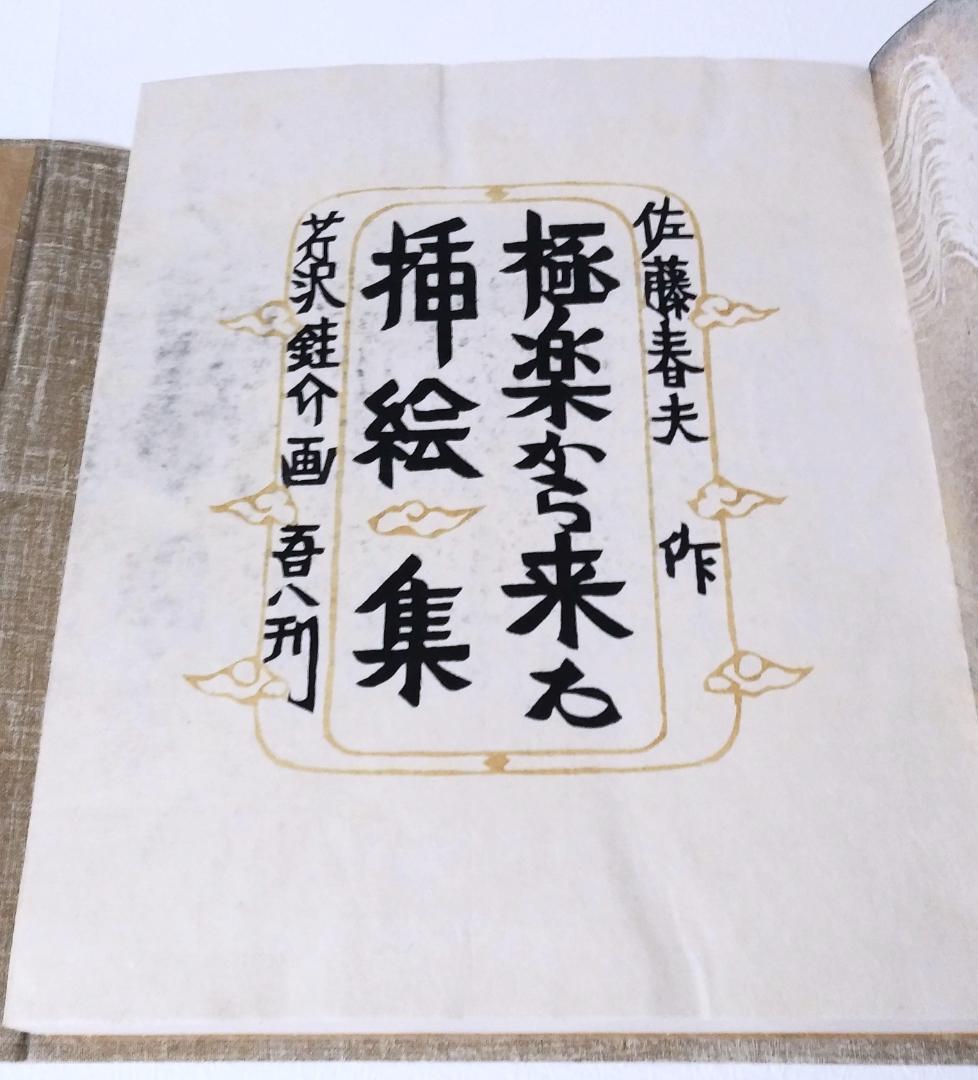 佐藤春夫 作
極楽から来る
挿絵集
芹沢銈介画 吾八刊